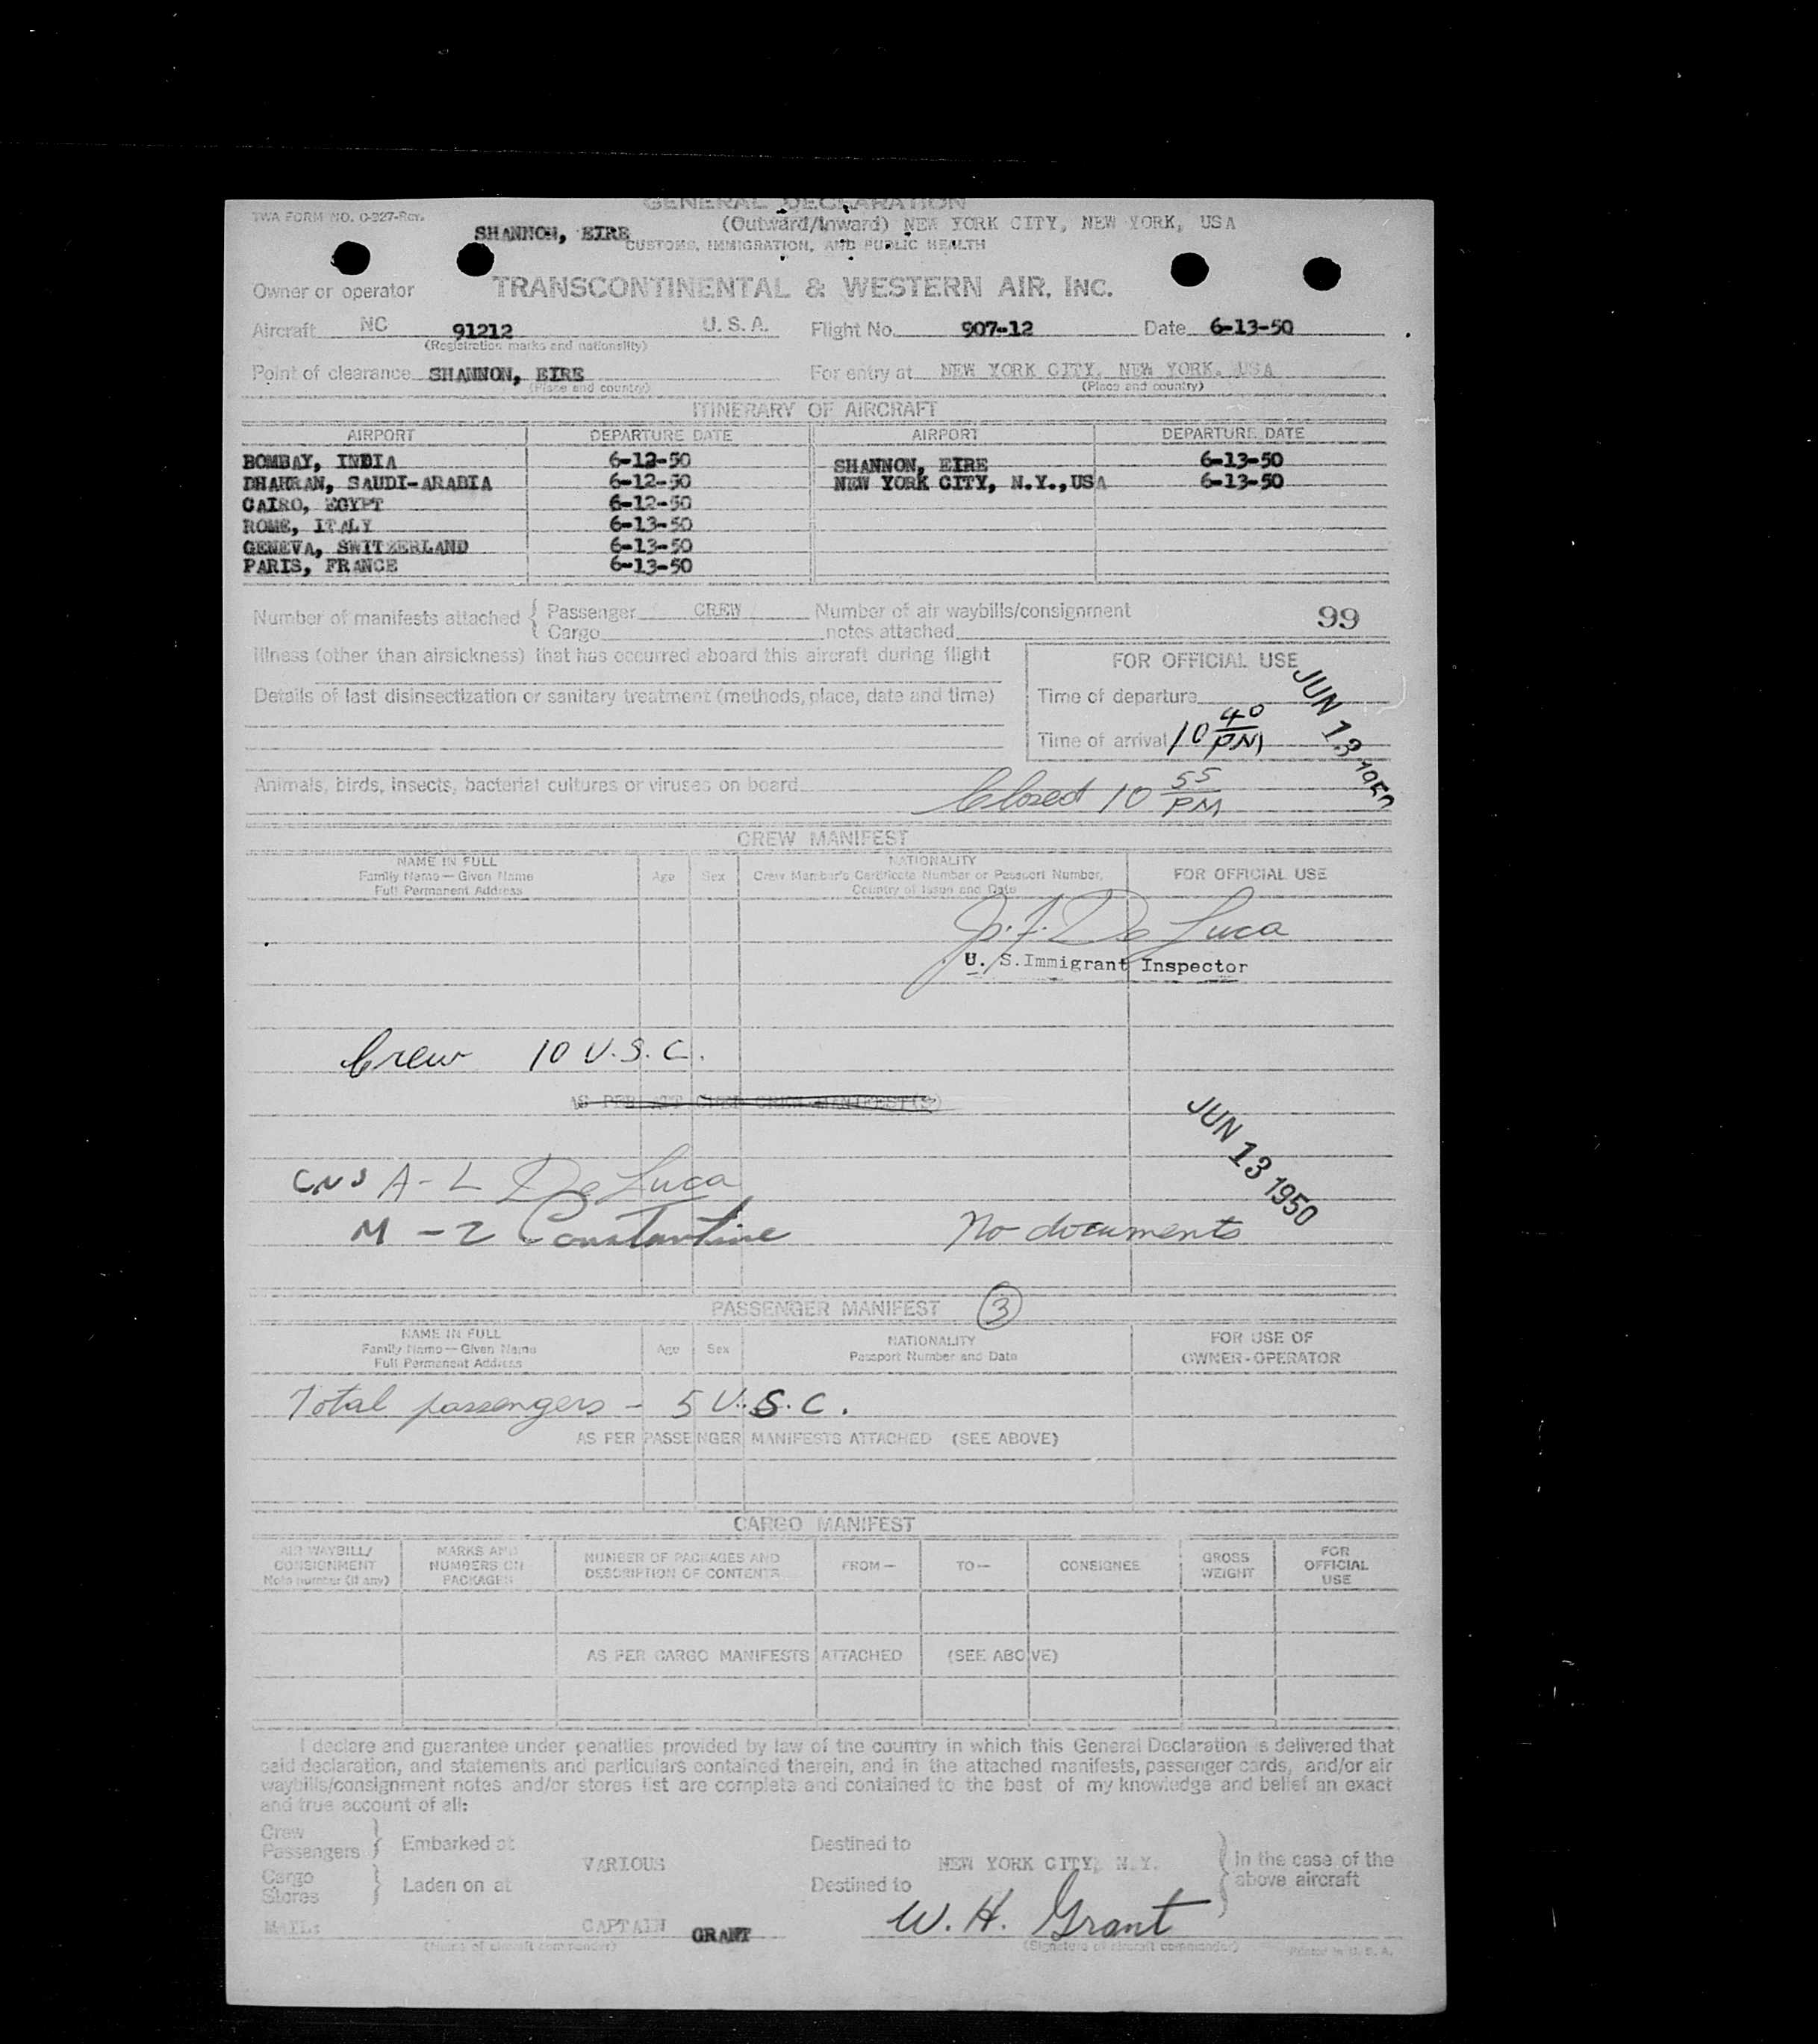 GENERAL DECLARATION
TWA FORM NO. O-927-Rev.
(Outward/Inward) NEW YORK CITY, NEW YORK, USA
SHANNON, EIRE
CUSTOMS, IMMIGRATION, AND PUBLIC HEALTH
Owner or operator TRANSCONTINENTAL & WESTERN AIR, INC.
Aircraft NC 91212 U.S.A. Flight No. 907-12 Date 6-13-50
(Registration marks and nationality)
Point of clearance SHANNON, EIRE For entry at NEW YORK CITY, NEW YORK, USA
(Place and country) (Place and country)
ITINERARY OF AIRCRAFT
AIRPORT DEPARTURE DATE AIRPORT DEPARTURE DATE
BOMBAY, INDIA 6-12-50 SHANNON, EIRE 6-13-50
DHAHRAN, SAUDI-ARABIA 6-12-50 NEW YORK CITY, N.Y., USA 6-13-50
CAIRO, EGYPT 6-12-50
ROME, ITALY 6-13-50
GENEVA, SWITZERLAND 6-13-50
PARIS, FRANCE 6-13-50
Number of manifests attached { Passenger CREW Number of air waybills/consignment 99
Cargo notes attached
Illness (other than airsickness) that has occurred aboard this aircraft during flight
FOR OFFICIAL USE
Details of last disinsectization or sanitary treatment (methods, place, date and time)
Time of departure
JUN 13 1950
Time of arrival 10 40 PM
Animals, birds, insects, bacterial cultures or viruses on board
Closed 10 55 PM
CREW MANIFEST
NAME IN FULL NATIONALITY
Family Name — Given Name Age Sex Crew Member's Certificate Number or Passport Number, FOR OFFICIAL USE
Full Permanent Address Country of Issue and Date
J. F. De Luca
U. S. Immigrant Inspector
Crew 10 U.S.C.
AS PER ATTACHED CREW MANIFEST(S)
JUN 13 1950
A-L De Luca
M - 2 Constantine No documents
PASSENGER MANIFEST 3
NAME IN FULL NATIONALITY FOR USE OF
Family Name — Given Name Age Sex Passport Number and Date OWNER-OPERATOR
Full Permanent Address
Total passengers - 5 U.S.C.
AS PER PASSENGER MANIFESTS ATTACHED (SEE ABOVE)
CARGO MANIFEST
AIR WAYBILL/ MARKS AND NUMBER OF PACKAGES AND FROM— TO— CONSIGNEE GROSS FOR
CONSIGNMENT NUMBERS ON DESCRIPTION OF CONTENTS WEIGHT OFFICIAL
Note number (if any) PACKAGES USE
AS PER CARGO MANIFESTS ATTACHED (SEE ABOVE)
I declare and guarantee under penalties provided by law of the country in which this General Declaration is delivered that
said declaration, and statements and particulars contained therein, and in the attached manifests, passenger cards, and/or air
waybills/consignment notes and/or stores list are complete and contained to the best of my knowledge and belief an exact
and true account of all:
Crew
Passengers } Embarked at Destined to
VARIOUS NEW YORK CITY, N.Y. } in the case of the
above aircraft
Cargo
Stores } Laden on at Destined to
MAIL: CAPTAIN GRANT W. H. Grant
(Name of aircraft commander) (Signature of aircraft commander) Printed in U. S. A.